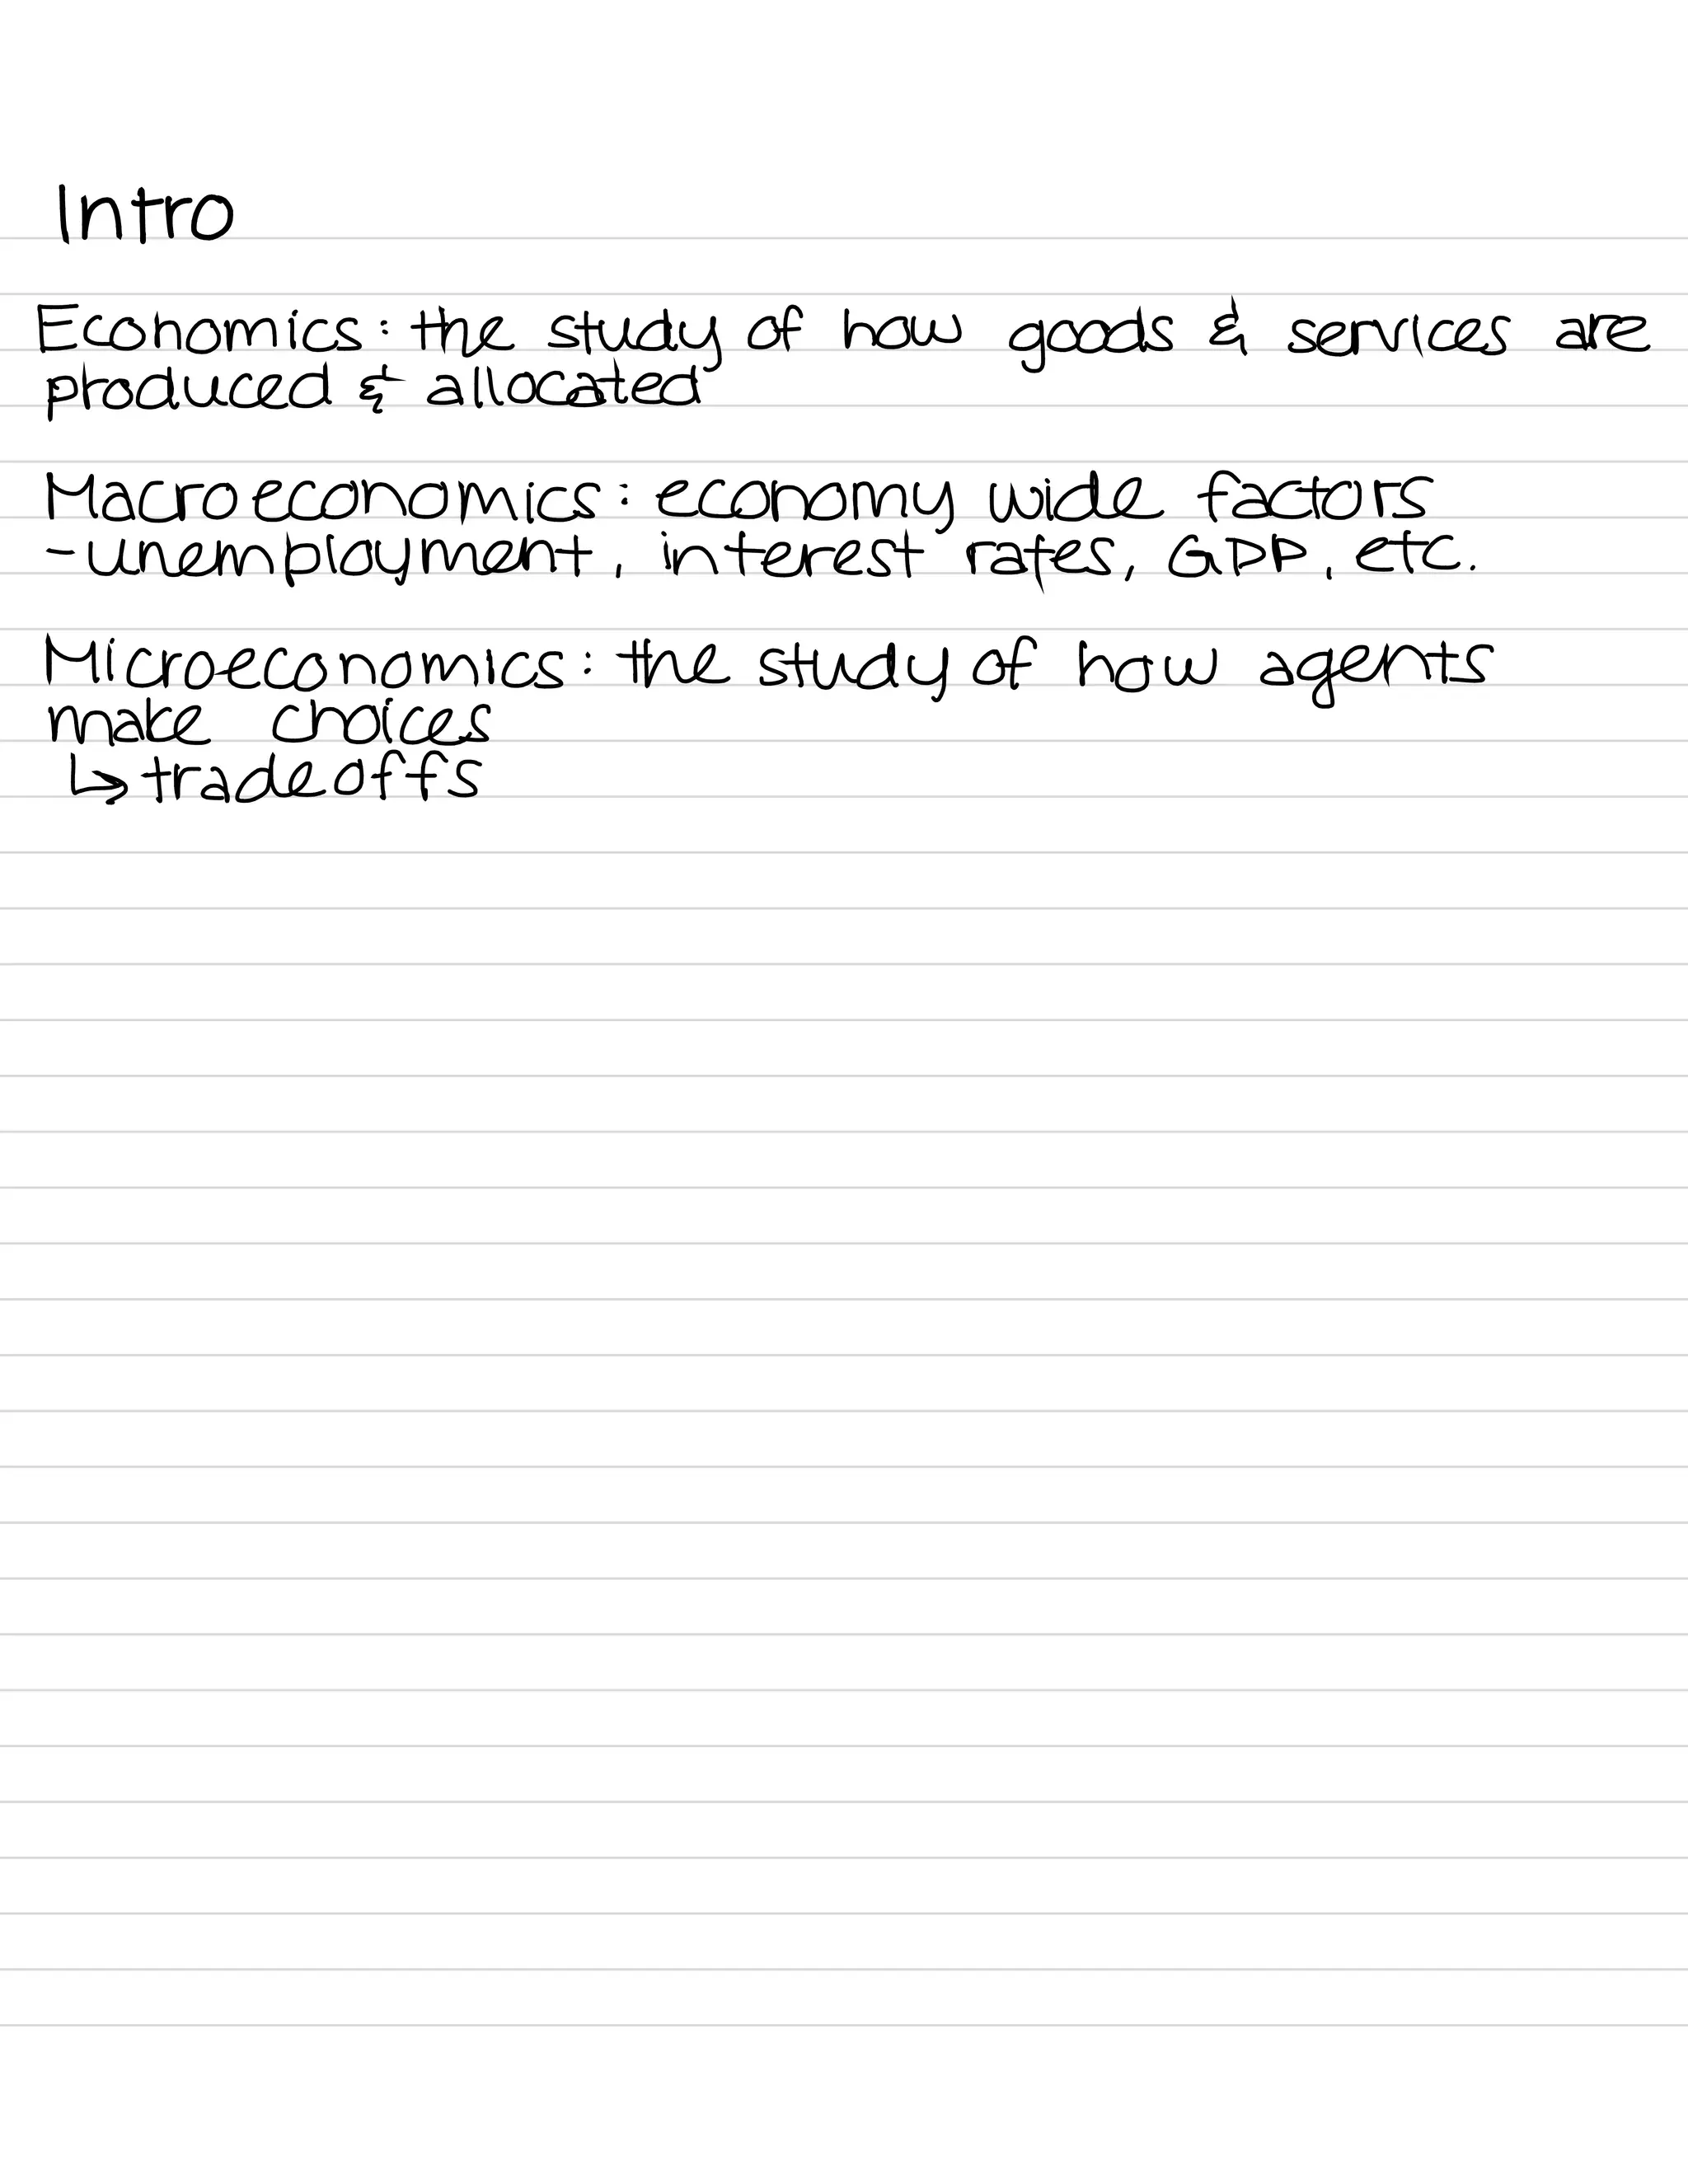 Intro
Economics: the study of how goods & services are
produced & allocated
Macroeconomics: economy wide factors
-unemployment, interest rates, GDP, etc.
Microeconomics: the study of how agents
make choices
↳tradeoffs